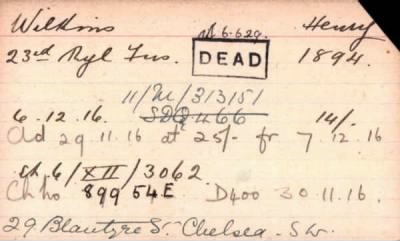 Wilkins Henry
23rd Ryl Fus. DEAD 1894.
11/M/313151
6.12.16. 14/-
Ad 29.11.16 at 25/- fr 7.12.16
6/XII/3062
899 54E D400 30.11.16.
29 Blantyre St Chelsea. S.W.